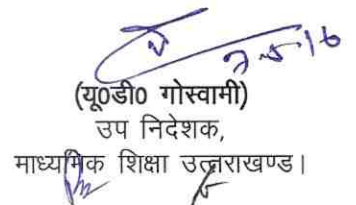 (यू0डी0 गोस्वामी)
उप निदेशक,
माध्यमिक शिक्षा उत्तराखण्ड।